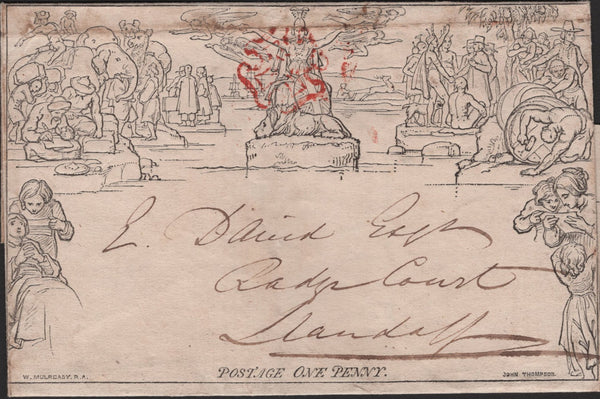 E. David Esqr
Radyr Court
Llandaff
POSTAGE ONE PENNY.
W. MULREADY. R.A.
JOHN THOMPSON.